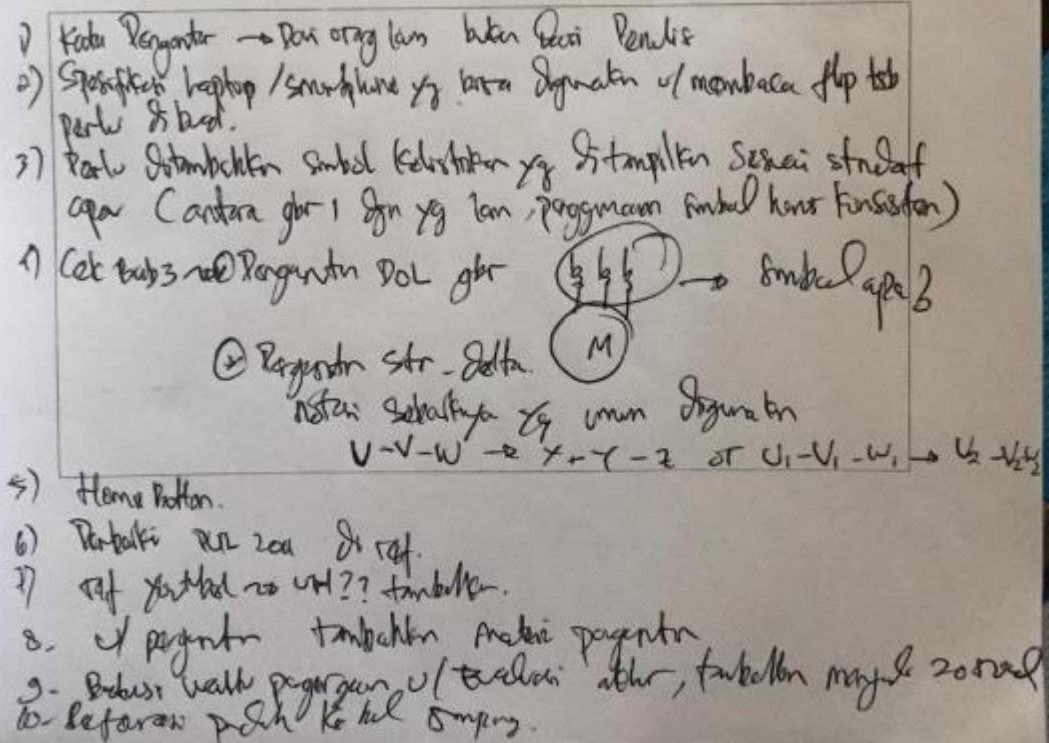 1) Kata Pengantar → Dari orang lain bukan Dari Penulis
2) Spesifikasi laptop / smartphone yg bisa digunakan u/ membaca flip tsb
perlu dibuat.
3) Perlu ditambahkan simbol kelistrikan yg ditampilkan sesuai standar
apa (antara gbr 1 dgn yg lain, penggunaan simbol harus konsisten)
4) Cek Bab 3 → ① Pengontrol DOL gbr → simbol apa?
M
② Star - delta.
notasi sebaiknya yg umum digunakan
U - V - W → X - Y - Z or U1 - V1 - W1 → U2 - V2 - W2
5) Home Button.
6) Perbaiki PUIL 2011 di ref.
7) ref → url?? tambahkan.
8. u/ tambahkan materi
9. waktu pengerjaan u/ Evaluasi akhir, tambahkan menjadi 20 soal
10. Referensi pindah ke hal